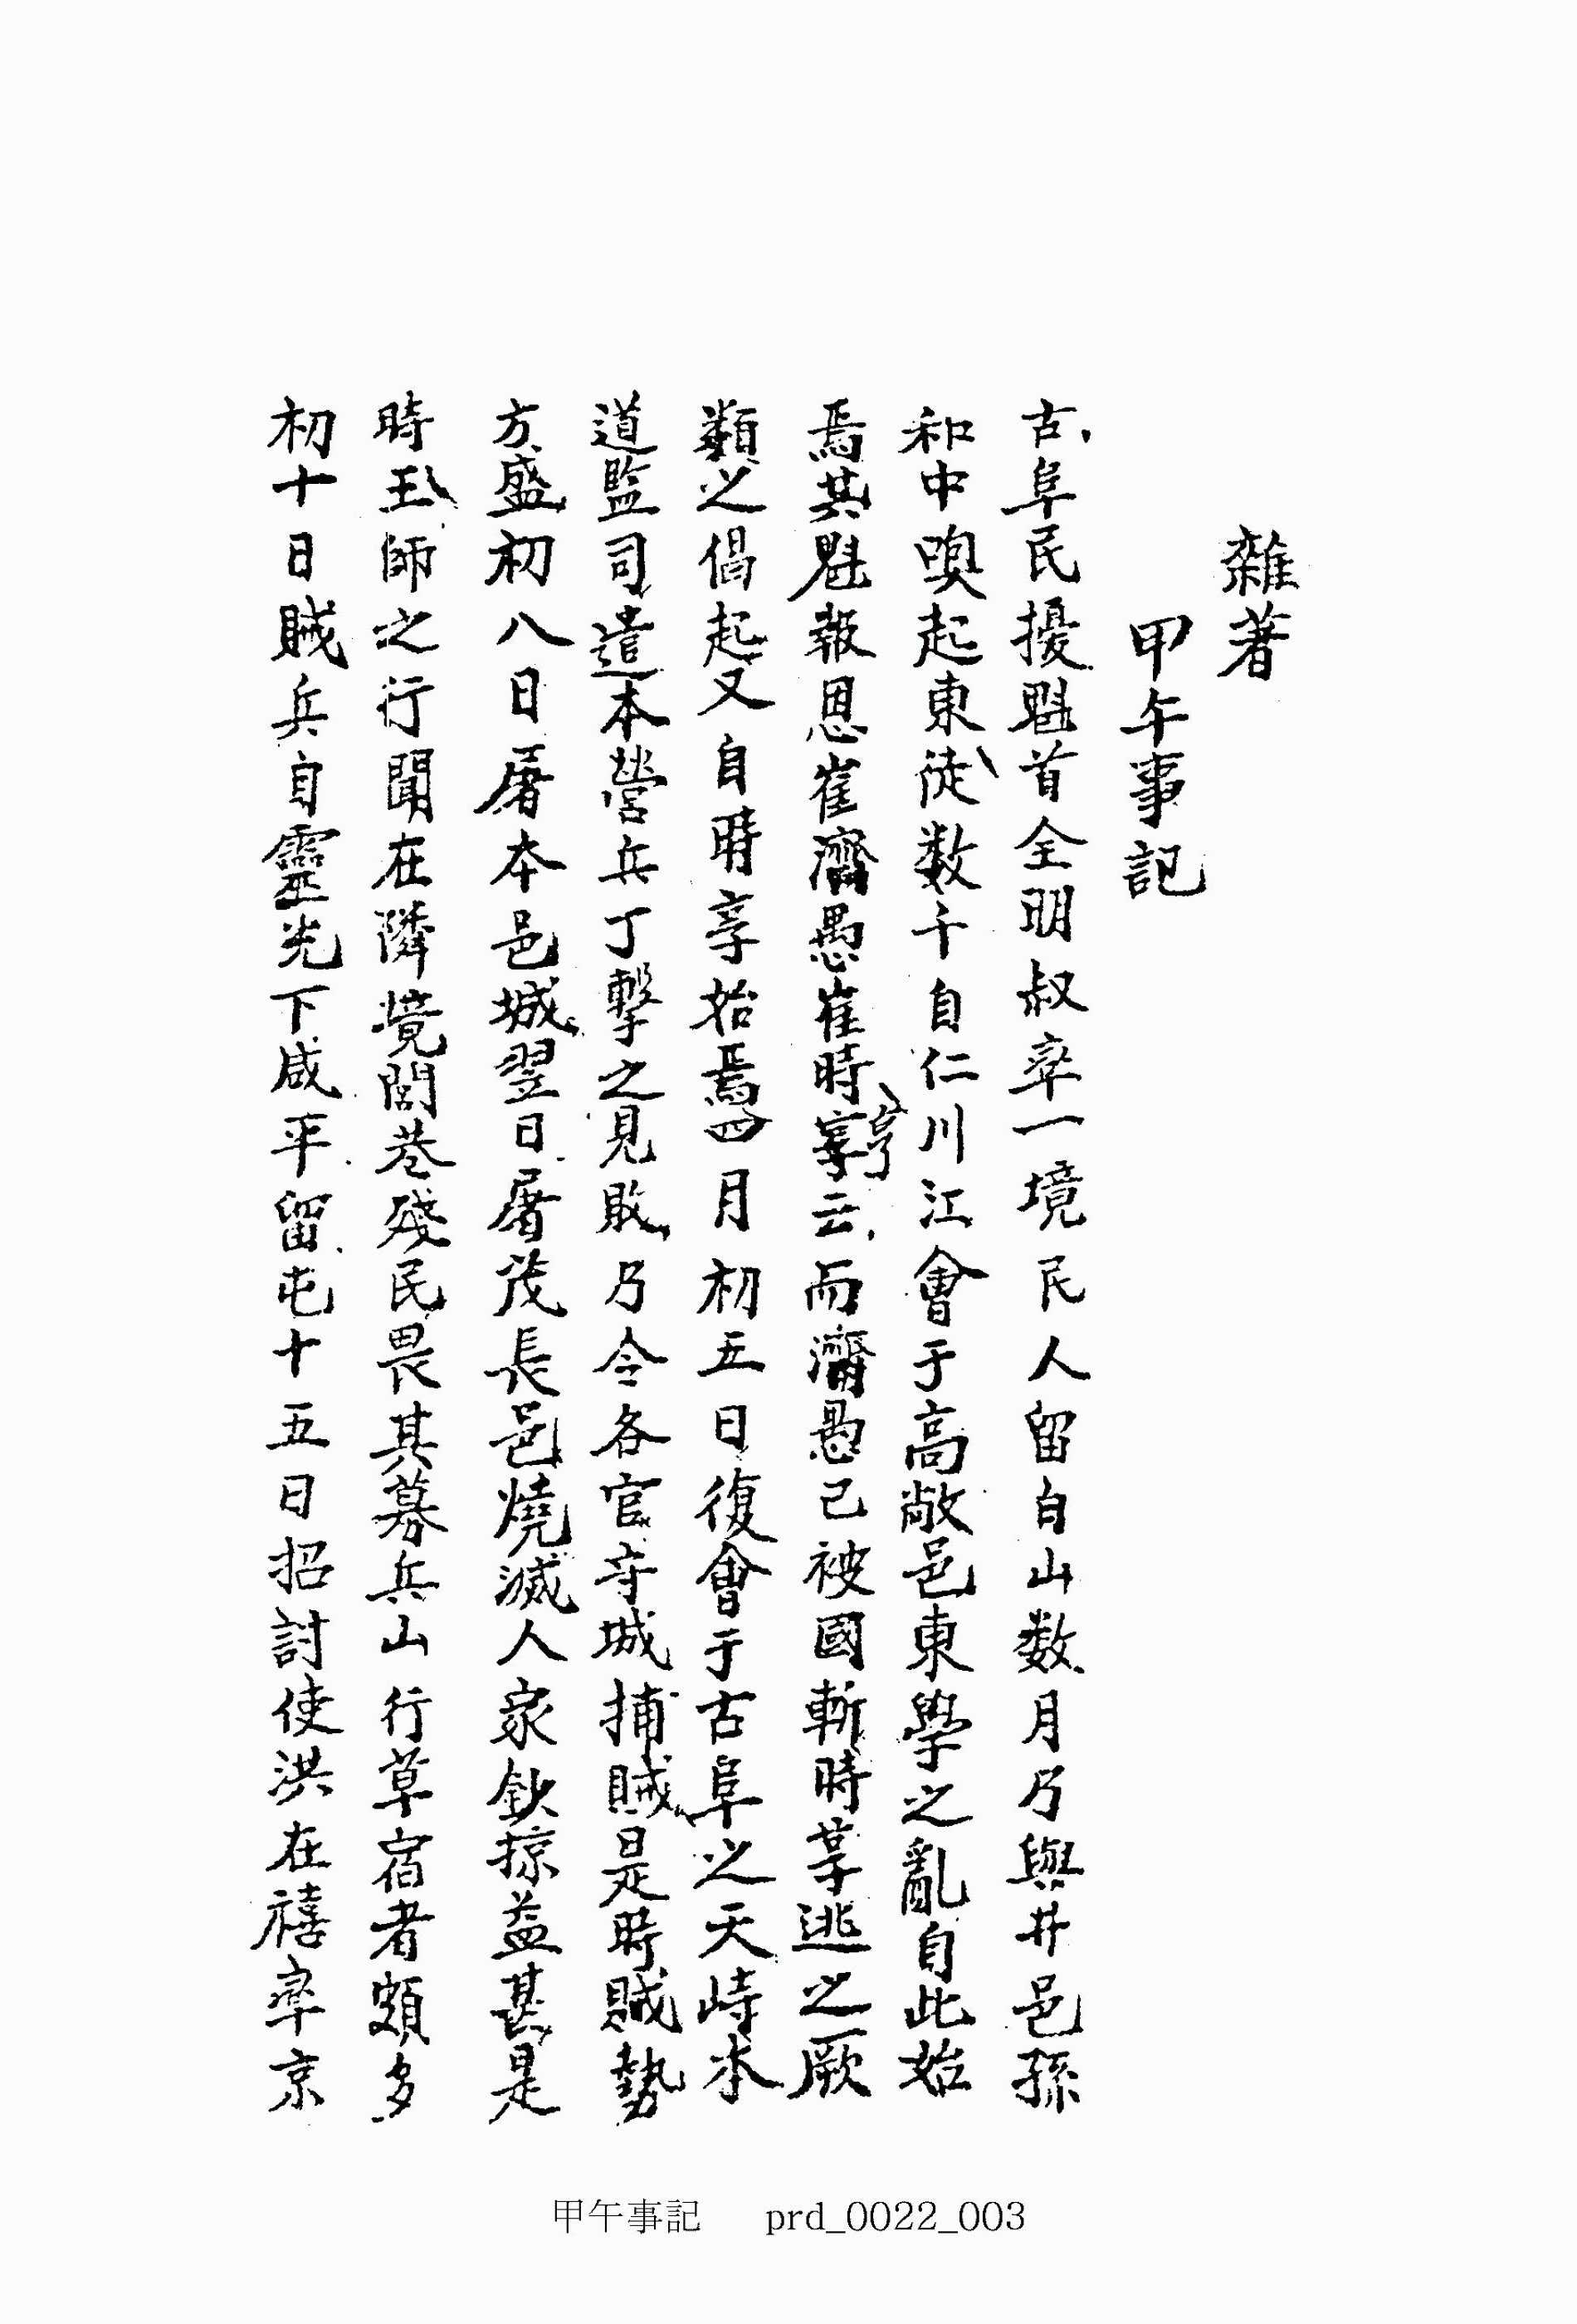 雜著
甲午事記
古阜民擾魁首全明叔率一境民人留白山数月乃與井邑孫
和中嗅起東徒数千自仁川江會于高敞邑東學之亂自此始
焉其魁報恩崔濟愚崔時享亨云而濟愚已被國斬時享逃之厥
類之倡起又自時享始焉四月初五日復會于古阜之天峙本
道監司遣本營兵丁擊之見敗乃令各官守城捕賊是時賊勢
方盛初八日屠本邑城翌日屠茂長邑燒滅人家鈔掠益甚是
時王師之行聞在隣境閭巷殘民畏其募兵山行草宿者頗多
初十日賊兵自靈光下咸平留屯十五日招討使洪在禧率京
甲午事記 prd_0022_003